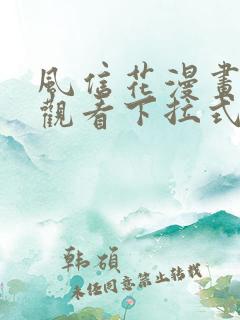 風信花漫畫
觀看下拉式
韩碩
未经同意禁止转载